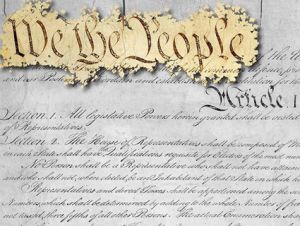 We the People
Article 1
Section 1. All legislative Powers herein granted shall be vested
of Representatives.
Section 2. The House of Representatives shall be composed of M
in each State shall have Qualifications requisite for Electors of the most num
No Person shall be a Representative who shall not have attained
and who shall not, when elected, be an Inhabitant of that State in which
Representatives and direct Taxes shall be apportioned among the
Numbers, which shall be determined by adding to the whole Number of free
not taxed, three fifths of all other Persons. The actual Enumeration shall